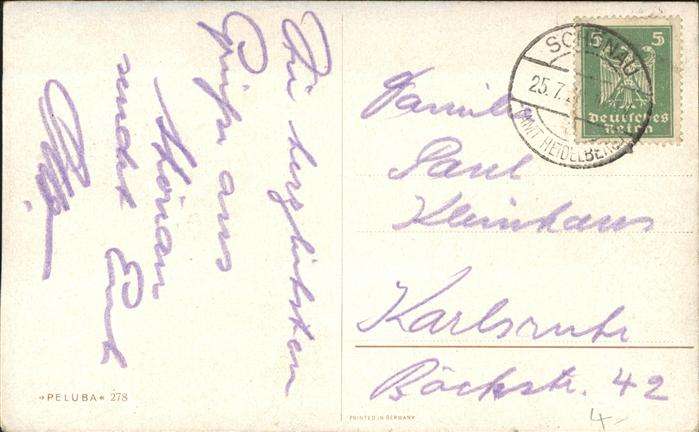 Die herzlichsten
Grüße aus
Schönau
sendet Euch
Familie
Paul
Kleinhans
Karlsruhe
Böckstr. 42
4-
SCHÖNAU
25.7.2
(AMT HEIDELBERG)
5 5
Deutsches
Reich
»PELUBA« 278
PRINTED IN GERMANY